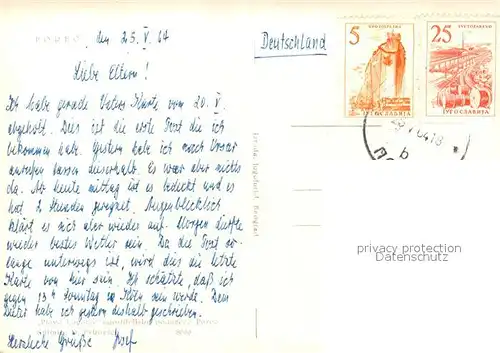 den 25. V. 64
Deutschland
Liebe Eltern!
Ich habe gerade Vaters Karte vom 20. V.
abgeholt. Dies ist die erste Post die ich
bekommen habe. Gestern habe ich noch
deshalb. Es war aber nichts
da. Ab heute mittag ist es bedeckt und es
hat 2 Stunden geregnet. Augenblicklich
klärt es sich aber wieder auf. Morgen dürfte
wieder bestes Wetter sein. Da die Post so
lange unterwegs ist, wird dies die letzte
Karte von hier sein. Ich schätze, daß ich
gegen 13h Sonntag in Köln sein werde. Dem
Dieter habe ich gestern deshalb geschrieben.
Herzliche Grüße Josef
5
ЈУГОСЛАВИЈА
25
JUGOSLAVIJA
privacy protection
DATENSCHUTZ